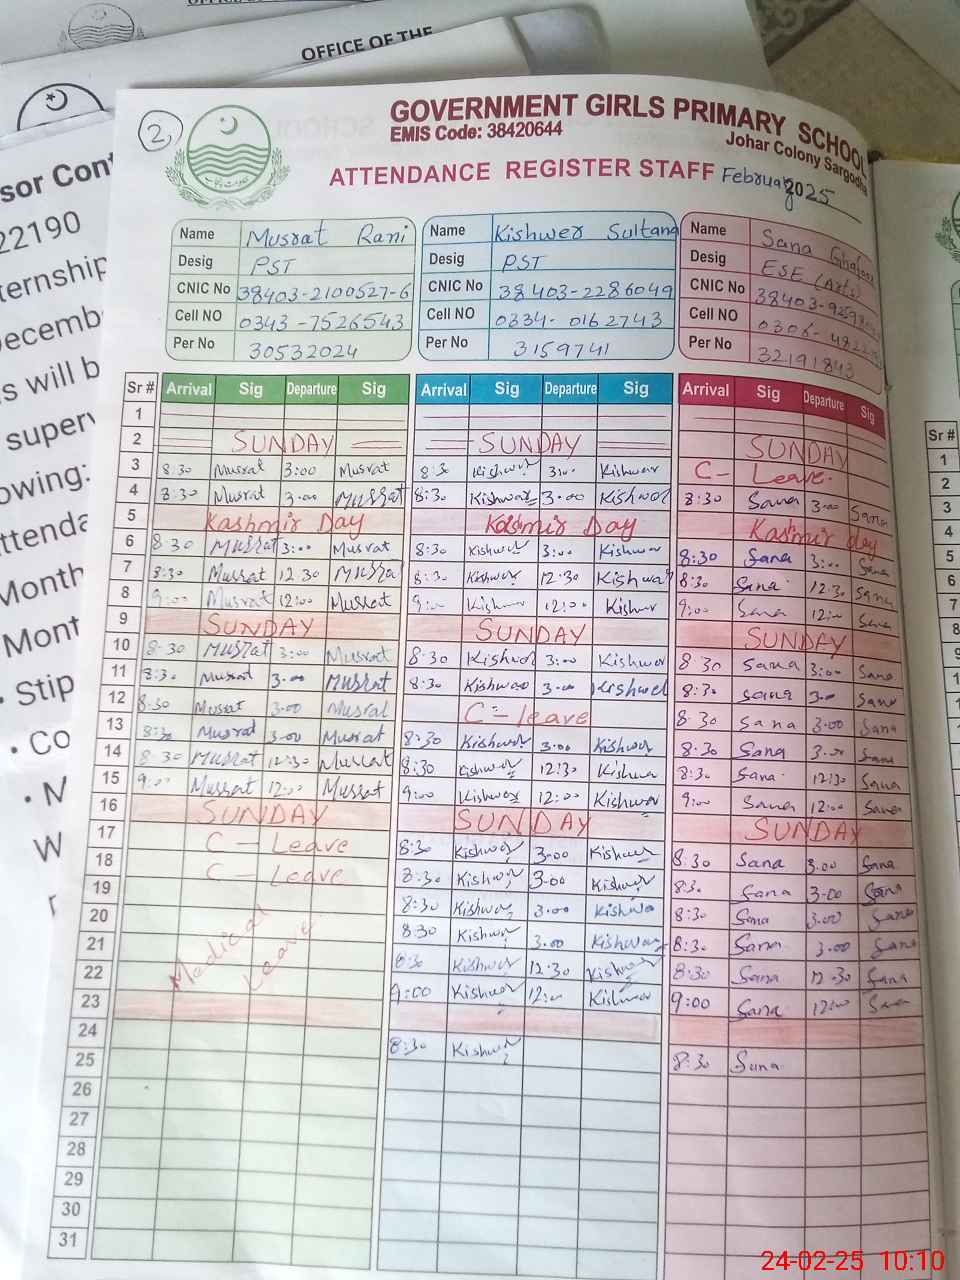 OFFICE OF THE
2,
GOVERNMENT GIRLS PRIMARY SCHOOL
EMIS Code: 38420644
Johar Colony Sargodha
ATTENDANCE REGISTER STAFF February 2025
sor Cont
22190
ternship
ecemb
s will b
superv
owing:
ttenda
Month
Mont
• Stip
• Co
• M
W
Name Musrat Rani Name Kishwer Sultana Name Sana Ghafoor
Desig PST Desig PST Desig ESE (Arts)
CNIC No 38403-2100527-6 CNIC No 38403-2286049 CNIC No 38403-9259
Cell NO 0343-7526543 Cell NO 0334-0162743 Cell NO 0306-482
Per No 30532024 Per No 3159741 Per No 32191843
Sr # Arrival Sig Departure Sig Arrival Sig Departure Sig Arrival Sig Departure Sig
1
2 SUNDAY SUNDAY SUNDAY
3 8:30 Musrat 3:00 Musrat 8:30 Kishwer 3:00 Kishwer C- Leave
4 8:30 Musrat 3.00 Musrat 8:30 Kishwer 3.00 Kishwer 8:30 Sana 3.00 Sana
5 Kashmir Day Kashmir Day Kashmir day
6 8:30 Musrat 3:00 Musrat 8:30 Kishwer 3:00 Kishwer 8:30 Sana 3:00 Sana
7 8:30 Musrat 12.30 Musrat 8:30 Kishwer 12.30 Kishwer 8:30 Sana 12.30 Sana
8 9:00 Musrat 12:00 Musrat 9:00 Kishwer 12:00 Kishwer 9:00 Sana 12:00 Sana
9 SUNDAY SUNDAY SUNDAY
10 8:30 Musrat 3:00 Musrat 8:30 Kishwer 3:00 Kishwer 8:30 Sana 3:00 Sana
11 8:30 Musrat 3.00 Musrat 8:30 Kishwer 3.00 Kishwer 8:30 Sana 3.00 Sana
12 8:30 Musrat 3.00 Musrat C- leave 8:30 Sana 3.00 Sana
13 8:30 Musrat 3.00 Musrat 8:30 Kishwer 3.00 Kishwer 8:30 Sana 3.00 Sana
14 8:30 Musrat 12:30 Musrat 8:30 Kishwer 12:30 Kishwer 8:30 Sana 12:30 Sana
15 9:00 Musrat 12:00 Musrat 9:00 Kishwer 12:00 Kishwer 9:00 Sana 12:00 Sana
16 SUNDAY SUNDAY SUNDAY
17 C- Leave 8:30 Kishwer 3.00 Kishwer 8:30 Sana 3.00 Sana
18 C- Leave 8:30 Kishwer 3.00 Kishwer 8:30 Sana 3.00 Sana
19 8:30 Kishwer 3.00 Kishwer 8:30 Sana 3.00 Sana
20 Medical Leave 8:30 Kishwer 3.00 Kishwer 8:30 Sana 3.00 Sana
21 8:30 Kishwer 12.30 Kishwer 8:30 Sana 12.30 Sana
22 9:00 Kishwer 12:00 Kishwer 9:00 Sana 12:00 Sana
23
24 8:30 Kishwer 8:30 Sana
25
26
27
28
29
30
31
Sr #
1
2
3
4
5
6
7
8
9
24-02-25 10:10